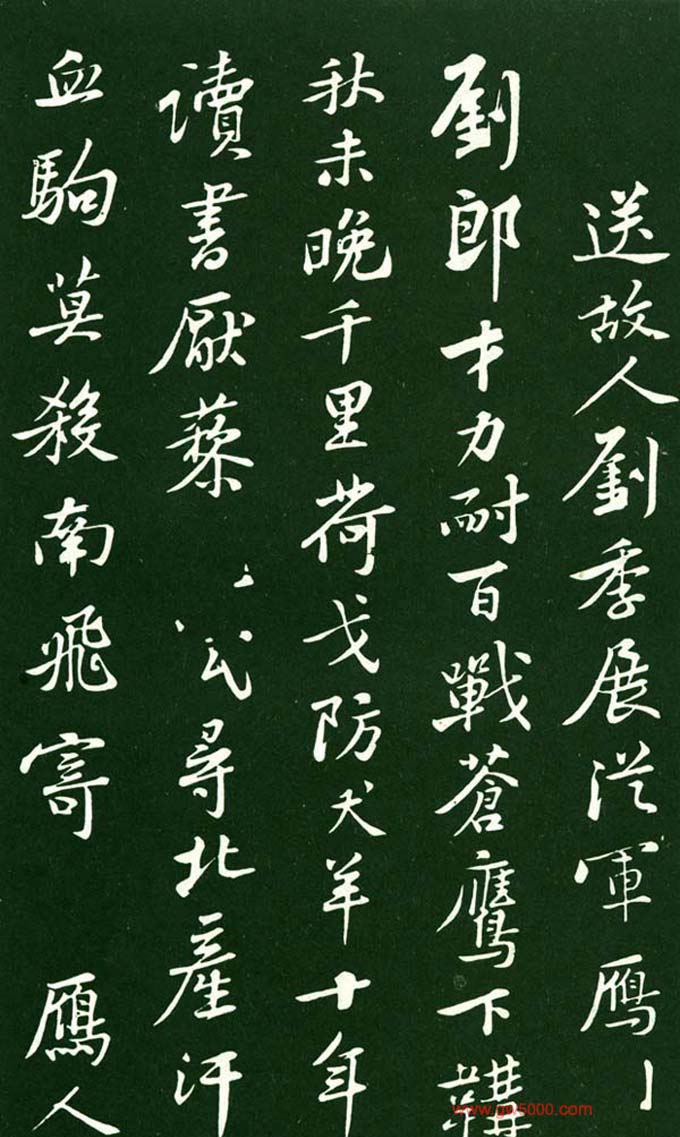 送故人劉季展從軍鴈
劉郎才力耐百戰蒼鷹下鞲
秋未晚千里荷戈防犬羊十年
讀書厭藜尋北產汗
血駒莫殺南飛寄鴈人
www.gw5000.com